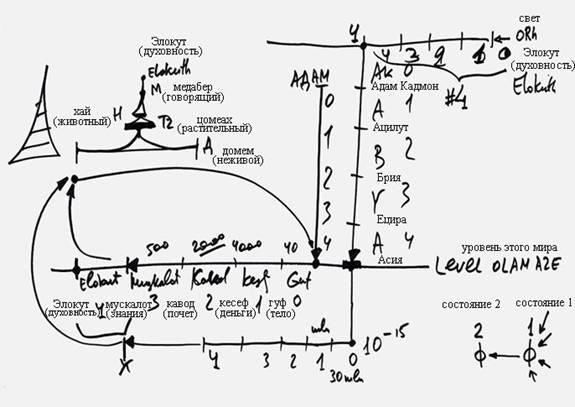 Элокут
(духовность)
Elokuth
M
медабер
(говорящий)
H
хай
(животный)
цомеах
(растительный)
Д
домем
(неживой)
АДАМ
0
1
2
3
4
свет
ORh
Элокут
(духовность)
Elokuth
4
4 3 2 1 0
#4
АК 0
Адам Кадмон
А 1
Ацилут
B 2
Брия
Y 3
Ецира
A 4
Асия
уровень этого мира
Level OLAM AZE
500 2000 4000 40
Elokut muskalot Kavod kesf Guf
Элокут
(духовность)
4
мускалот
(знания)
3
кавод
(почет)
2
кесеф
(деньги)
1
гуф
(тело)
0
X
4 3 2 1 0
mln
30 mln
10 -15
состояние 2
состояние 1
2 1